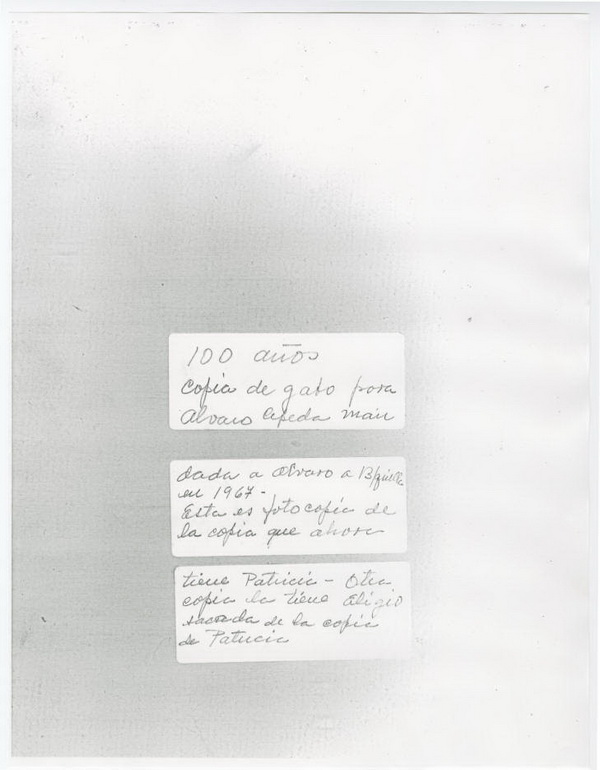 100 años
copia de gabo para
Alvaro Cepeda
dada a Alvaro a B/quilla
en 1967 -
Esta es fotocopia de
la copia que ahora
tiene Patricia - Otra
copia la tiene Eligio
sacada de la copia
de Patricia